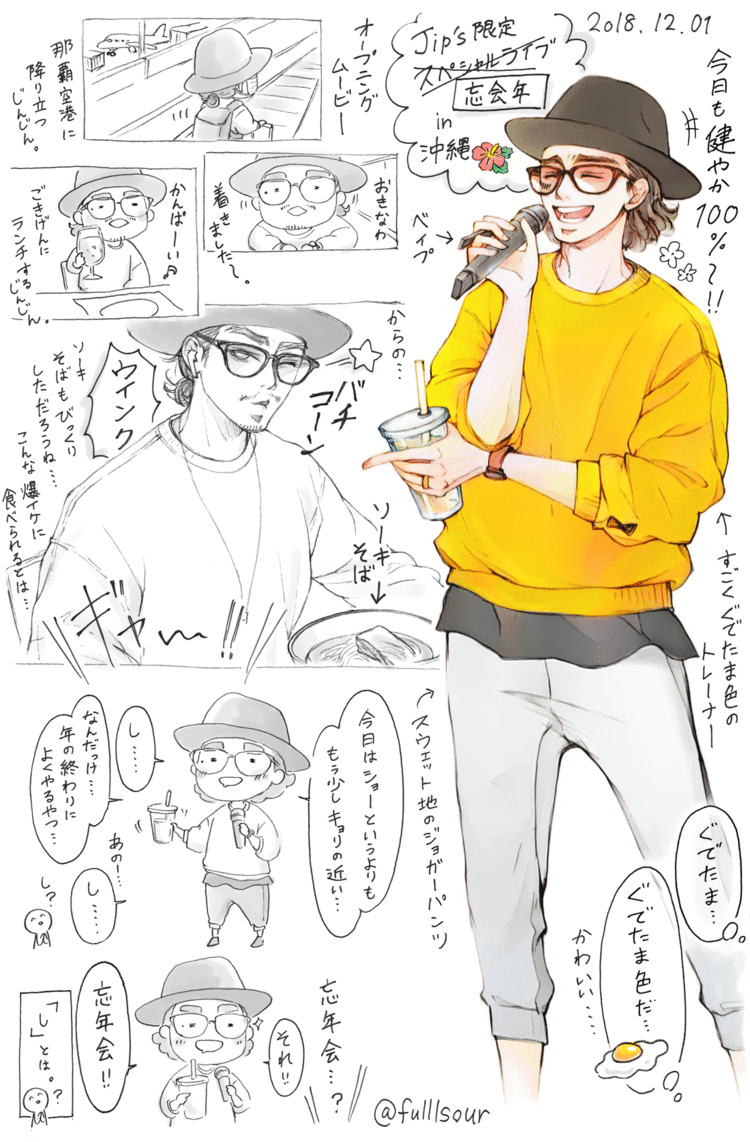 2018.12.01
Jip's限定
スペシャルライブ
忘会年
in
沖縄
今日も健やか100%〜!!
ベイプ
オープニング
ムービー
那覇空港に
降り立つ
じんじん。
おきなわ
着きました〜。
かんぱーい♪
ごきげんに
ランチするじんじん。
からの…
バチ
コーン
ウインク
ソーキ
そばもびっくり
しただろうね…
こんな爆イケに
食べられるとは…
ソーキ
そば
ギャー〜!!
↑すごくぐでたま色の
トレーナー
←スウェット地のジョガーパンツ
今日はショーというよりも
もう少しキョリの近い…
し…
なんだっけ…
年の終わりに
よくやるやつ…
あの!…
し……
し?
忘年会…?
それ!!
忘年会!!
「し」とは。?
ぐでたま…
ぐでたま色だ…
かわいい…
@fulllsour